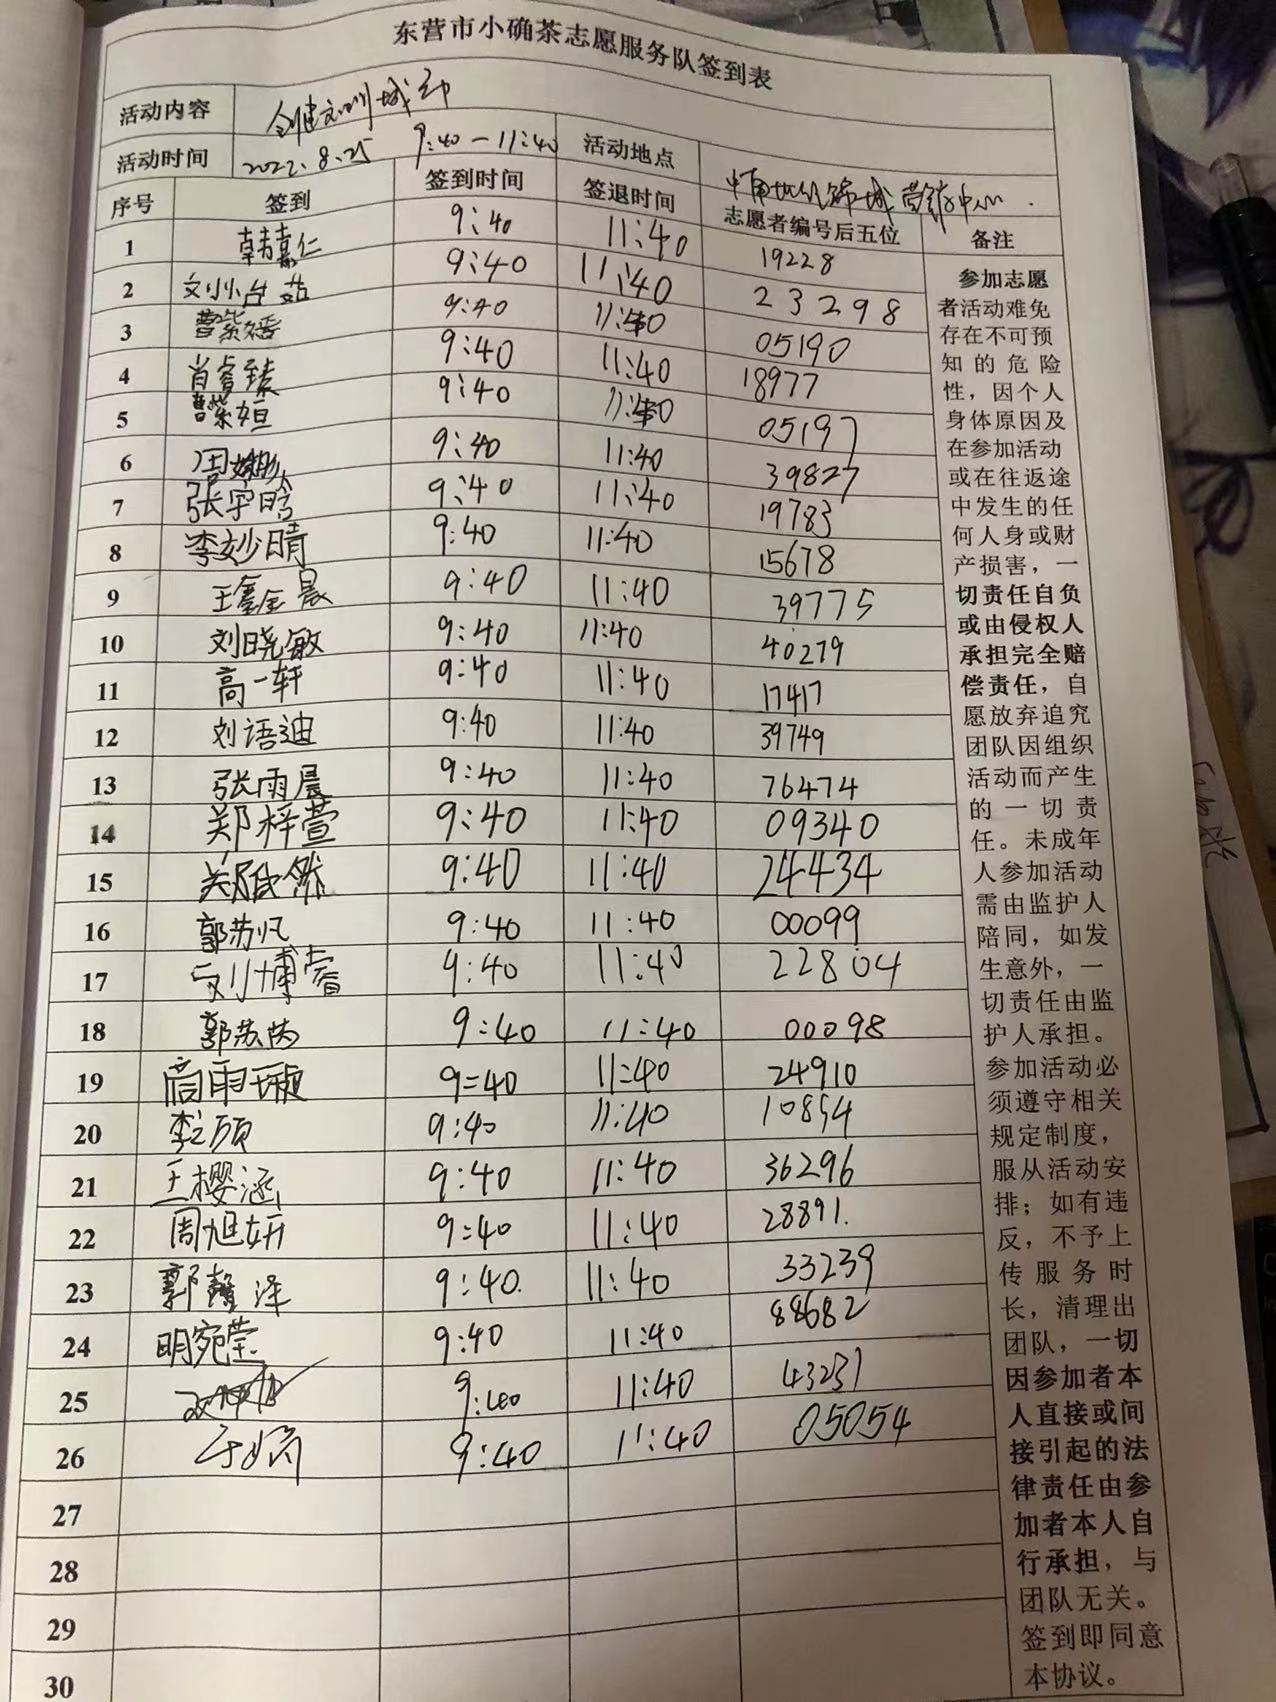 东营市小确茶志愿服务队签到表
活动内容 创建文明城市
活动时间 2022.8.25 9:40—11:40 活动地点 中南世纪锦城营销中心.
序号 签到 签到时间 签退时间 志愿者编号后五位 备注
1 韩嘉仁 9:40 11:40 19228
2 刘小台茹 9:40 11:40 23298
3 曹紫 9:40 11:40 05190
4 肖睿臻 9:40 11:40 18977
5 曹紫姮 9:40 11:40 05197
6 周 9:40 11:40 39827
7 张宇晗 9:40 11:40 19783
8 李妙晴 9:40 11:40 15678
9 王鑫晨 9:40 11:40 39775
10 刘晓敏 9:40 11:40 40279
11 高一轩 9:40 11:40 17417
12 刘语迪 9:40 11:40 39749
13 张雨晨 9:40 11:40 76474
14 郑梓萱 9:40 11:40 09340
15 郑 然 9:40 11:40 24434
16 郭苏 9:40 11:40 00099
17 刘博睿 9:40 11:40 22804
18 郭苏芮 9:40 11:40 00098
19 高雨璇 9:40 11:40 24910
20 李 颀 9:40 11:40 10854
21 王樱涵 9:40 11:40 36296
22 周旭妍 9:40 11:40 28891.
23 郭馨泽 9:40. 11:40 33239
24 明宛莹 9:40 11:40 88682
25 9:40 11:40 43231
26 于 9:40 11:40 05054
27
28
29
30
参加志愿
者活动难免
存在不可预
知的危险
性，因个人
身体原因及
在参加活动
或在往返途
中发生的任
何人身或财
产损害，一
切责任自负
或由侵权人
承担完全赔
偿责任，自
愿放弃追究
团队因组织
活动而产生
的一切责
任。未成年
人参加活动
需由监护人
陪同，如发
生意外，一
切责任由监
护人承担。
参加活动必
须遵守相关
规定制度，
服从活动安
排；如有违
反，不予上
传服务时
长，清理出
团队，一切
因参加者本
人直接或间
接引起的法
律责任由参
加者本人自
行承担，与
团队无关。
签到即同意
本协议。